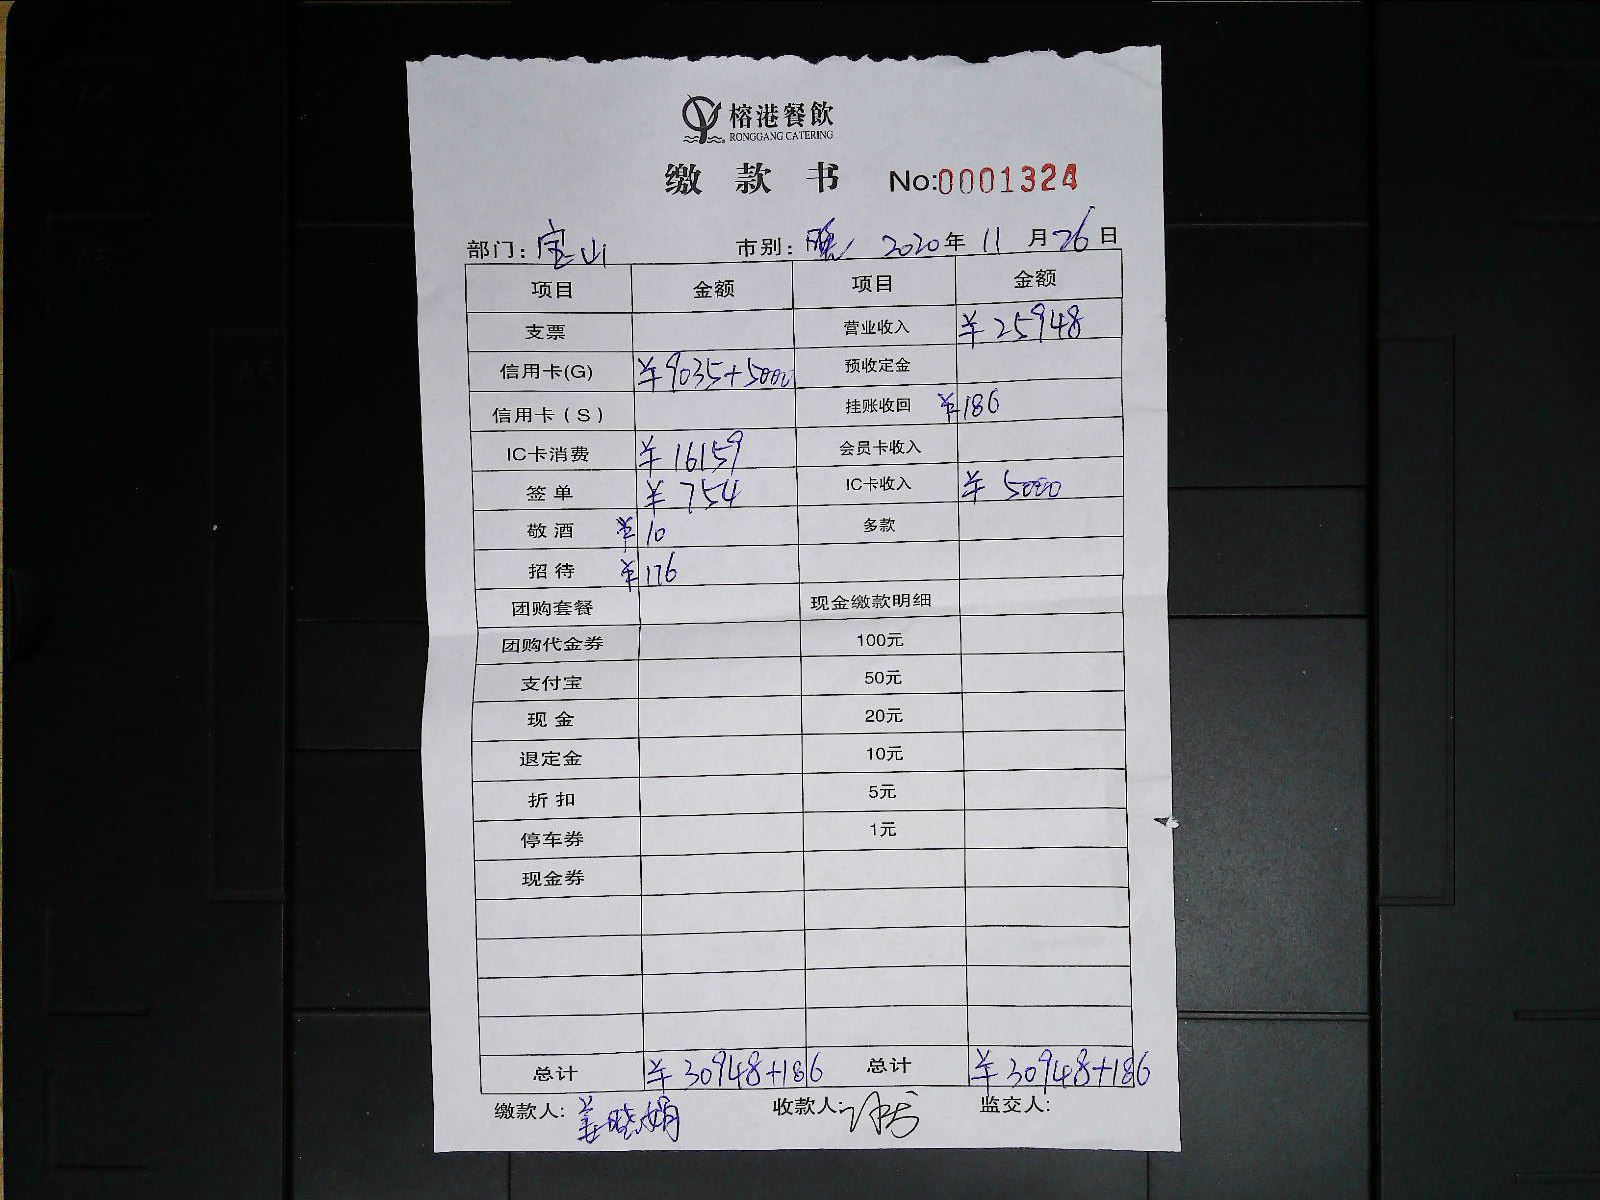 榕港餐飲
RONGGANG CATERING
缴款书 No:0001324
部门: 宝山 市别: 晚 2020年 11 月 26 日
项目 金额 项目 金额
支票 营业收入 ¥25948
信用卡(G) ¥9035+5000 预收定金
信用卡(S) 挂账收回 ¥186
IC卡消费 ¥16159 会员卡收入
签单 ¥754 IC卡收入 ¥5000
敬酒 ¥10 多款
招待 ¥176
团购套餐 现金缴款明细
团购代金券 100元
支付宝 50元
现金 20元
退定金 10元
折扣 5元
停车券 1元
现金券
总计 ¥30948+186 总计 ¥30948+186
缴款人: 姜晓娟 收款人: 监交人: